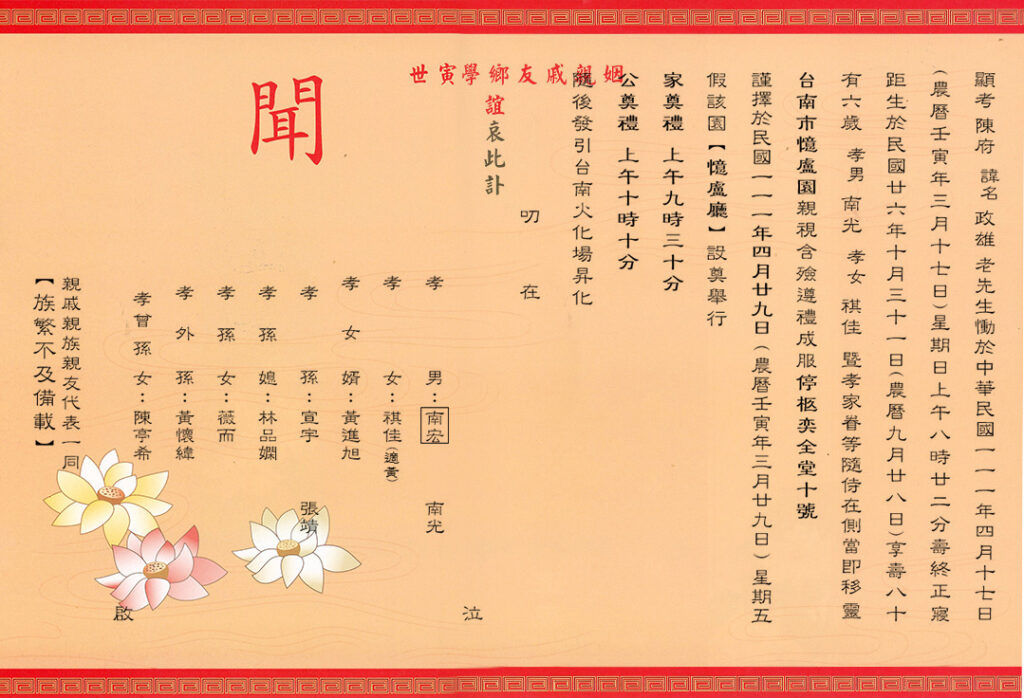 顯考 陳府 諱名 政雄 老先生慟於中華民國一一一年四月十七日
(農曆壬寅年三月十七日)星期日上午八時廿二分壽終正寢
距生於民國廿六年十月三十一日(農曆九月廿八日)享壽八十
有六歲 孝男 南光 孝女 祺佳 暨孝家眷等隨侍在側當即移靈
台南市憶盧園親視含殮遵禮成服停柩奕全堂十號
謹擇於民國一一一年四月廿九日(農曆壬寅年三月廿九日)星期五
假該園【憶盧廳】設奠舉行
家奠禮 上午九時三十分
公奠禮 上午十時十分
隨後發引台南火化場昇化
叨 在
姻親戚友鄉學寅世
誼哀此訃
聞
孝 男：南宏 南光
孝 女：祺佳(適黃)
孝 女 婿：黃進旭
孝 孫：宣宇 張靖
孝 孫 媳：林品嫻
孝 孫 女：薇而
孝 外 孫：黃懷緯
孝曾孫 女：陳亭希
泣
啟
親戚親族親友代表一同
【族繁不及備載】